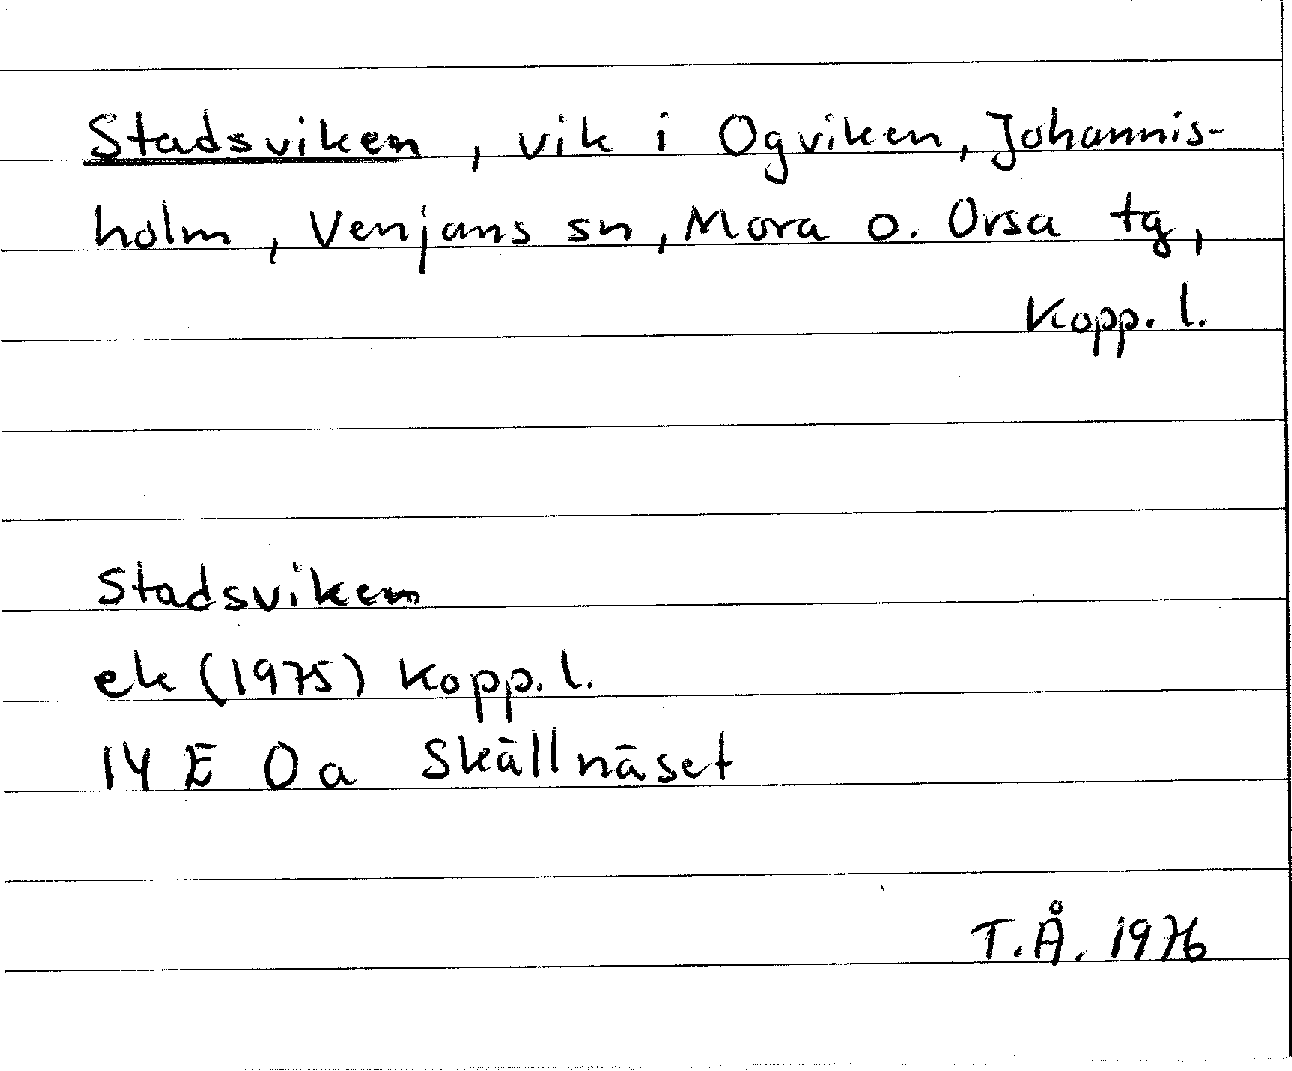 Stadsviken, vik i Ogviken, Johannis-
holm, Venjans sn, Mora o. Orsa tg,
Kopp. l.
Stadsviken
ek (1975) Kopp. l.
14 E 0 a Skällnäset
T.Å. 1976